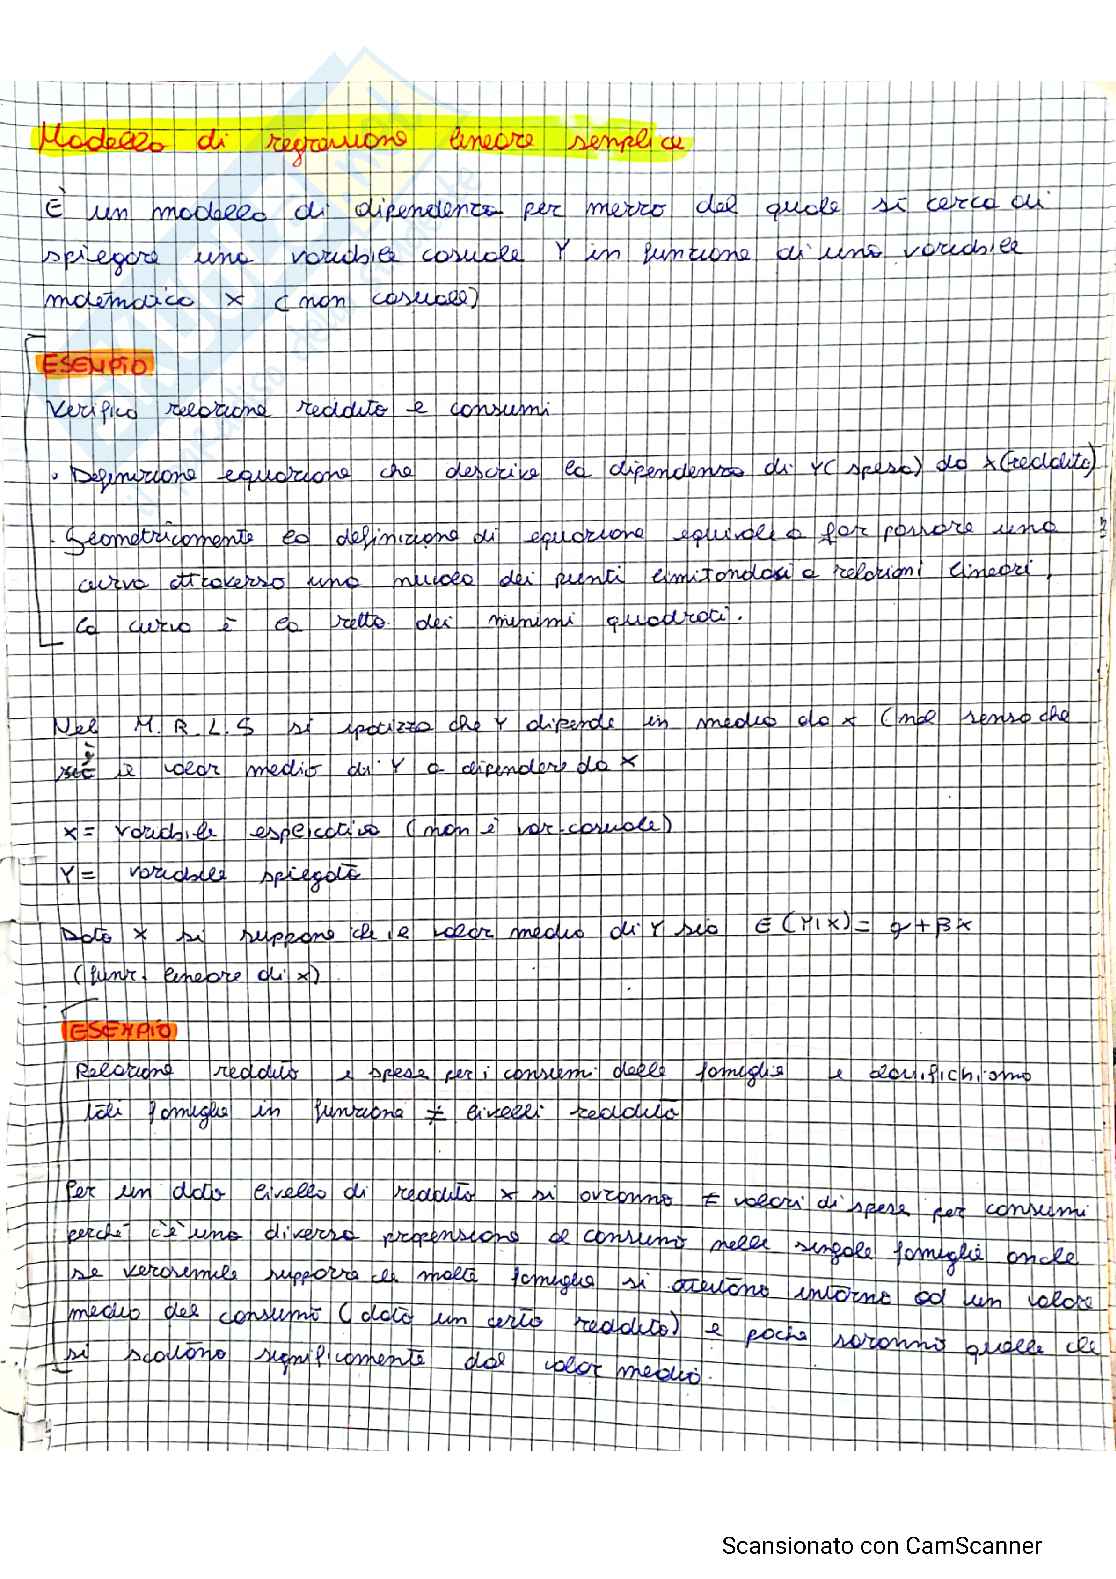 Modello di regressione lineare semplice
È un modello di dipendenza per mezzo del quale si cerca di
spiegare una variabile casuale Y in funzione di una variabile
matematica X (non casuale)
ESEMPIO
Verifico relazione reddito e consumi
· Definizione equazione che descrive la dipendenza di Y (spesa) da X (reddito)
· Geometricamente la definizione di equazione equivale a far passare una
curva attraverso una nuvola dei punti limitandosi a relazioni lineari,
la curva è la retta dei minimi quadrati.
Nel M.R.L.S si ipotizza che Y dipende in media da X (nel senso che
è il valor medio di Y a dipendere da X
X = variabile esplicativa (non è var. casuale)
Y = variabile spiegata
Dato X si suppone che il valor medio di Y sia E(Y|X) = α + βX
(funz. lineare di X)
ESEMPIO
Relazione reddito e spesa per i consumi delle famiglie e classifichiamo
tali famiglie in funzione ≠ livelli reddito
Per un dato livello di reddito X si avranno ≠ valori di spesa per consumi
perché c'è una diversa propensione al consumo nelle singole famiglie anche
se verosimile supporre che molte famiglie si attestano intorno ad un valore
medio del consumo (dato un certo reddito) e poche saranno quelle che
si scostano significamente dal valor medio.
Scansionato con CamScanner